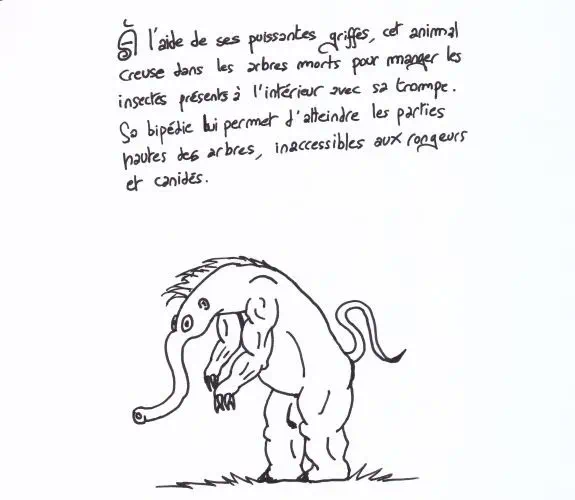 À l'aide de ses puissantes griffes, cet animal
creuse dans les arbres morts pour manger les
insectes présents à l'intérieur avec sa trompe.
Sa bipédie lui permet d'atteindre les parties
hautes des arbres, inaccessibles aux rongeurs
et canidés.